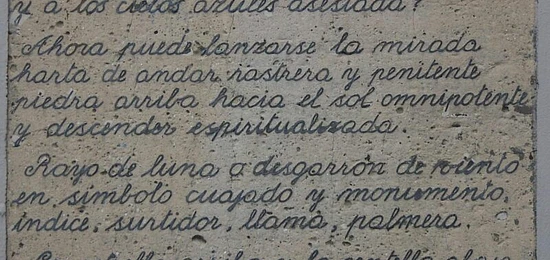 y a los cielos azules asestada?
Ahora puede lanzarse la mirada
harta de andar rastrera y penitente
piedra arriba hacia el sol omnipotente
y descender espiritualizada.
Rayo de luna o desgarrón de viento
en símbolo cuajado y monumento,
índice, surtidor, llama, palmera.